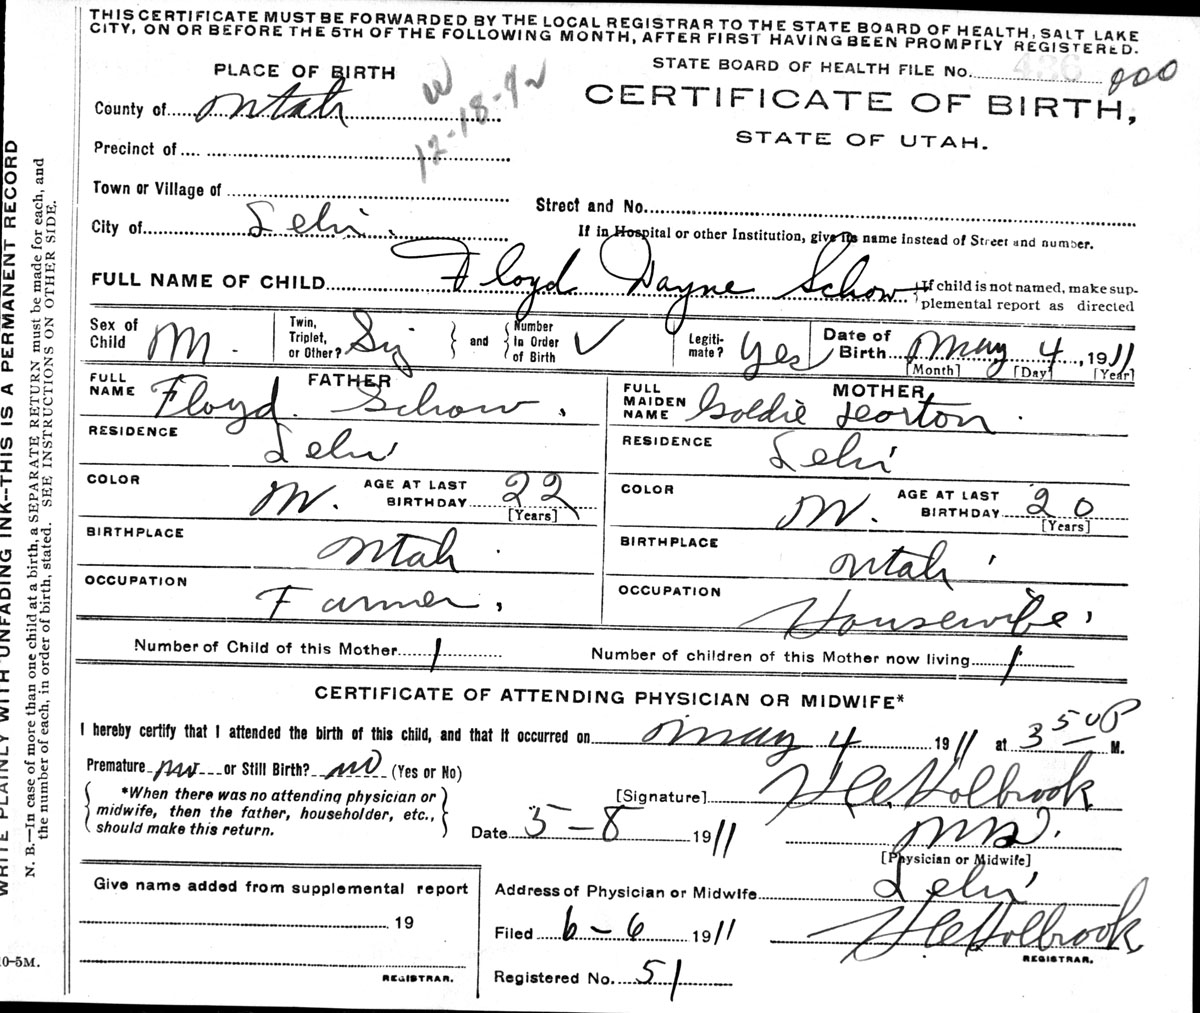 THIS CERTIFICATE MUST BE FORWARDED BY THE LOCAL REGISTRAR TO THE STATE BOARD OF HEALTH, SALT LAKE
CITY, ON OR BEFORE THE 5TH OF THE FOLLOWING MONTH, AFTER FIRST HAVING BEEN PROMPTLY REGISTERED.
STATE BOARD OF HEALTH FILE No. 436 000
PLACE OF BIRTH
W
12-18-42
CERTIFICATE OF BIRTH,
STATE OF UTAH.
County of Utah
Precinct of
Town or Village of
Street and No.
City of Lehi.
If in Hospital or other Institution, give its name instead of Street and number.
FULL NAME OF CHILD Floyd Wayne Schow
If child is not named, make sup-
plemental report as directed
Sex of Child M. Twin, Triplet, or Other? Sig and Number In Order of Birth ✓ Legiti-mate? Yes Date of Birth May 4, 1911
[Month] [Day] [Year]
FATHER
FULL NAME Floyd Schow.
RESIDENCE Lehi
COLOR W. AGE AT LAST BIRTHDAY 22
[Years]
BIRTHPLACE Utah
OCCUPATION Farmer.
MOTHER
FULL MAIDEN NAME Goldie
RESIDENCE Lehi
COLOR W. AGE AT LAST BIRTHDAY 20
[Years]
BIRTHPLACE Utah
OCCUPATION Housewife.
Number of Child of this Mother 1
Number of children of this Mother now living 1
CERTIFICATE OF ATTENDING PHYSICIAN OR MIDWIFE*
I hereby certify that I attended the birth of this child, and that it occurred on May 4 1911 at 3 50 P M.
Premature no or Still Birth? no (Yes or No)
*When there was no attending physician or
midwife, then the father, householder, etc.,
should make this return.
[Signature] Holbrook
Date 5-8 1911
M.D.
[Physician or Midwife]
Give name added from supplemental report
19
REGISTRAR.
Address of Physician or Midwife Lehi
Filed 6-6 1911 Holbrook
REGISTRAR.
Registered No. 51
WRITE PLAINLY WITH UNFADING INK--THIS IS A PERMANENT RECORD
N. B.—In case of more than one child at a birth, a SEPARATE RETURN must be made for each, and
the number of each, in order of birth, stated. SEE INSTRUCTIONS ON OTHER SIDE.
10-5M.